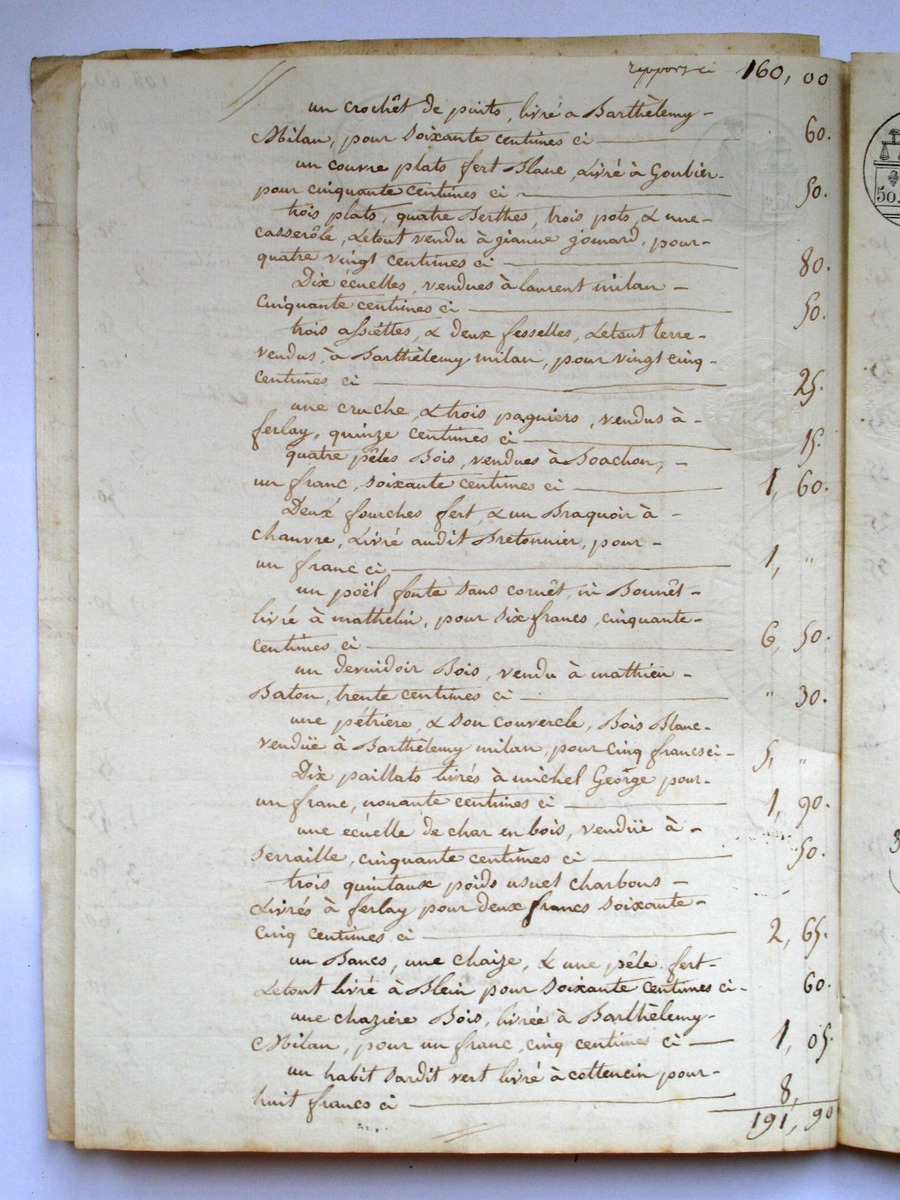 report ci 160, 00
un crochêt de puits, livré a Barthèlemy-
Milan, pour soixante centimes ci 60.
un couvre plats fert Blanc, Livré à Goubier-
pour cinquante centimes ci 50.
trois plats, quatre Berthes, trois pots, & une-
casserôle, Letout vendu à jeanne jomard, pour-
quatre vingt centimes ci 80.
Dix écuelles, vendues à laurent milan -
Cinquante centimes ci 50.
trois assiettes, & deux fesselles, Letout terre-
vendus, à Barthèlemy milan, pour vingt cinq-
centimes ci 25.
une cruche, & trois pagniers, vendus à-
ferlay, quinze centimes ci 15.
quatre pêles Bois, vendues à Boachon, -
un franc, soixante centimes ci 1, 60.
Deux fourches fert, & un Braquoir à -
chanvre, Livré audit Bretonnier, pour -
un franc ci 1, "
un poël fonte sans cornêt, ni Bonnêt-
livré à mathelin, pour six francs, cinquante-
centimes ci 6, 50.
un devuidoir Bois, vendu à mathieu -
Baton, trente centimes ci " 30.
une pétrière, & son couvercle, Bois Blanc-
vendüe à Barthèlemy milan, pour cinq francs ci - 5, "
Dix paillats livrés à michel George pour-
un franc, nonante centimes ci 1, 90.
une écuelle de char en bois, vendüe à -
Serraille, cinquante centimes ci 50.
trois quintaux poids usuel charbons -
Livrés à ferlay pour deux francs soixante-
cinq centimes ci 2, 65.
un Bancs, une chaize, & une pêle fert-
Letout livré à Blein pour soixante centimes ci - 60.
une chazière Bois, livrée à Barthèlemy-
Milan, pour un franc, cinq centimes ci 1, 05.
un habit sardit vert livré à cottencin pour-
huit francs ci 8,
191, 90
50.